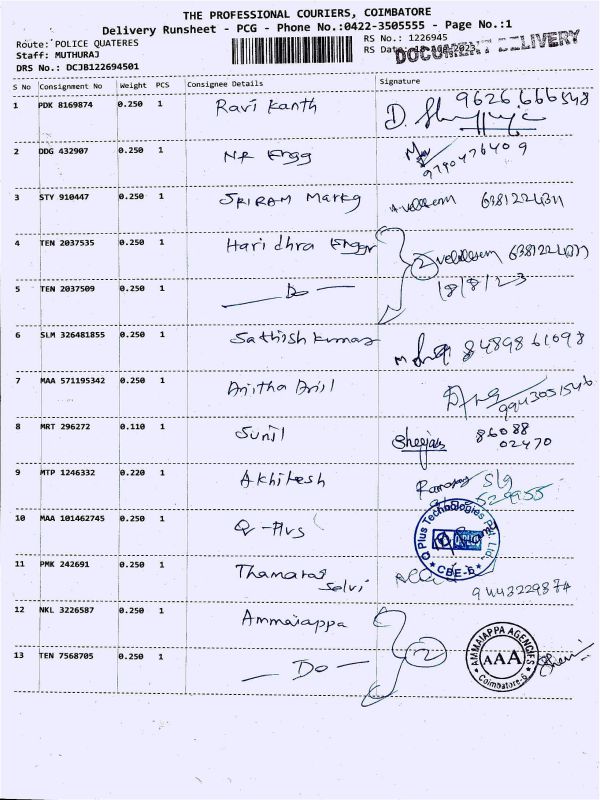 THE PROFESSIONAL COURIERS, COIMBATORE
Delivery Runsheet - PCG - Phone No.:0422-3505555 - Page No.:1
Route: POLICE QUATERES
Staff: MUTHURAJ
DRS No.: DCJB122694501
RS No.: 1226945
RS Date: 18-AUG-2023
DOCUMENT DELIVERY
S No Consignment No Weight PCS Consignee Details Signature
1 PDK 8169874 0.250 1 Ravi Kanth 9626666548
2 DDG 432907 0.250 1 NR Engg 9790476409
3 STY 910447 0.250 1 SRIRAM Markg
4 TEN 2037535 0.250 1 Haridhra Enggr 2
5 TEN 2037509 0.250 1 — Do — 18/8/23
6 SLM 326481855 0.250 1 Sathish Kumar 8489861098
7 MAA 571195342 0.250 1 Anitha 9943051546
8 MRT 296272 0.110 1 Sunil Sheejan 86088
02470
9 MTP 1246332 0.220 1 Akhilesh Slg
529955
10 MAA 101462745 0.250 1 Q-Plus
Q Plus Technologies Pvt. Ltd. CBE-6
11 PMK 242691 0.250 1 Thamarai
Selvi 9443229874
12 NKL 3226587 0.250 1 Ammaiappa 2
13 TEN 7568705 0.250 1 — Do —
AMMAIAPPA AGENCIES
AAA
Coimbatore-6